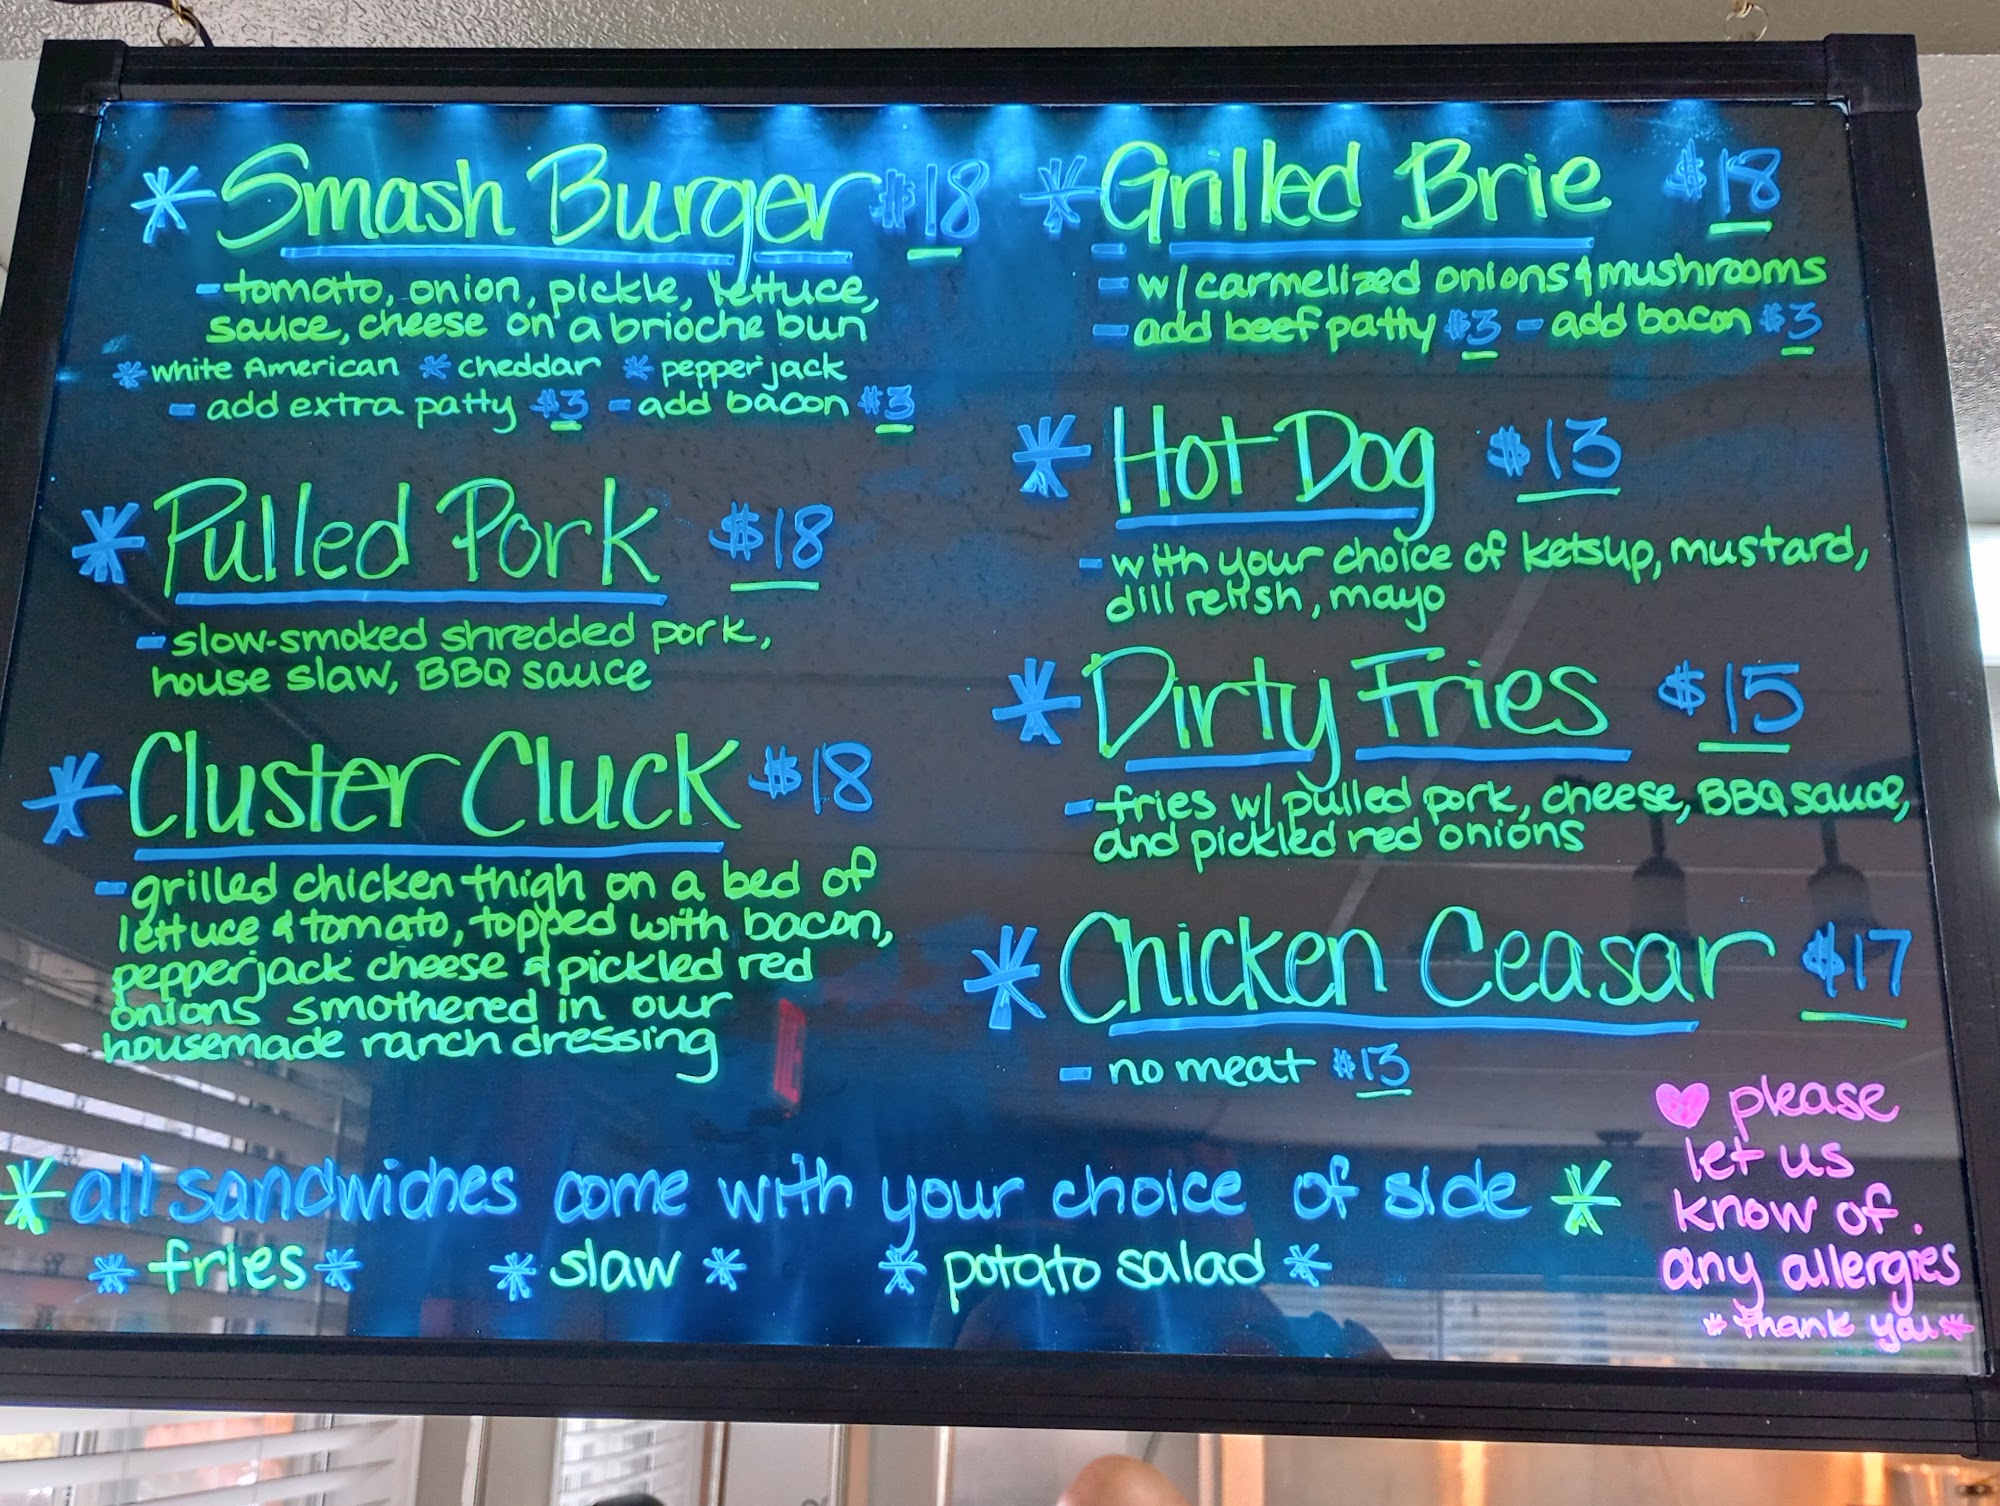 * Smash Burger $18
- tomato, onion, pickle, lettuce,
sauce, cheese on a brioche bun
* white American * cheddar * pepperjack
- add extra patty $3 - add bacon $3
* Pulled Pork $18
- slow-smoked shredded pork,
house slaw, BBQ sauce
* Cluster Cluck $18
- grilled chicken thigh on a bed of
lettuce & tomato, topped with bacon,
pepperjack cheese & pickled red
onions smothered in our
housemade ranch dressing
* Grilled Brie $18
- w/ carmelized onions & mushrooms
- add beef patty $3 - add bacon $3
* Hot Dog $13
- with your choice of ketsup, mustard,
dill relish, mayo
* Dirty Fries $15
- fries w/ pulled pork, cheese, BBQ sauce,
and pickled red onions
* Chicken Ceasar $17
- no meat $13
* all sandwiches come with your choice of side *
* fries * * slaw * * potato salad *
♥ please
let us
know of
any allergies
* Thank you *